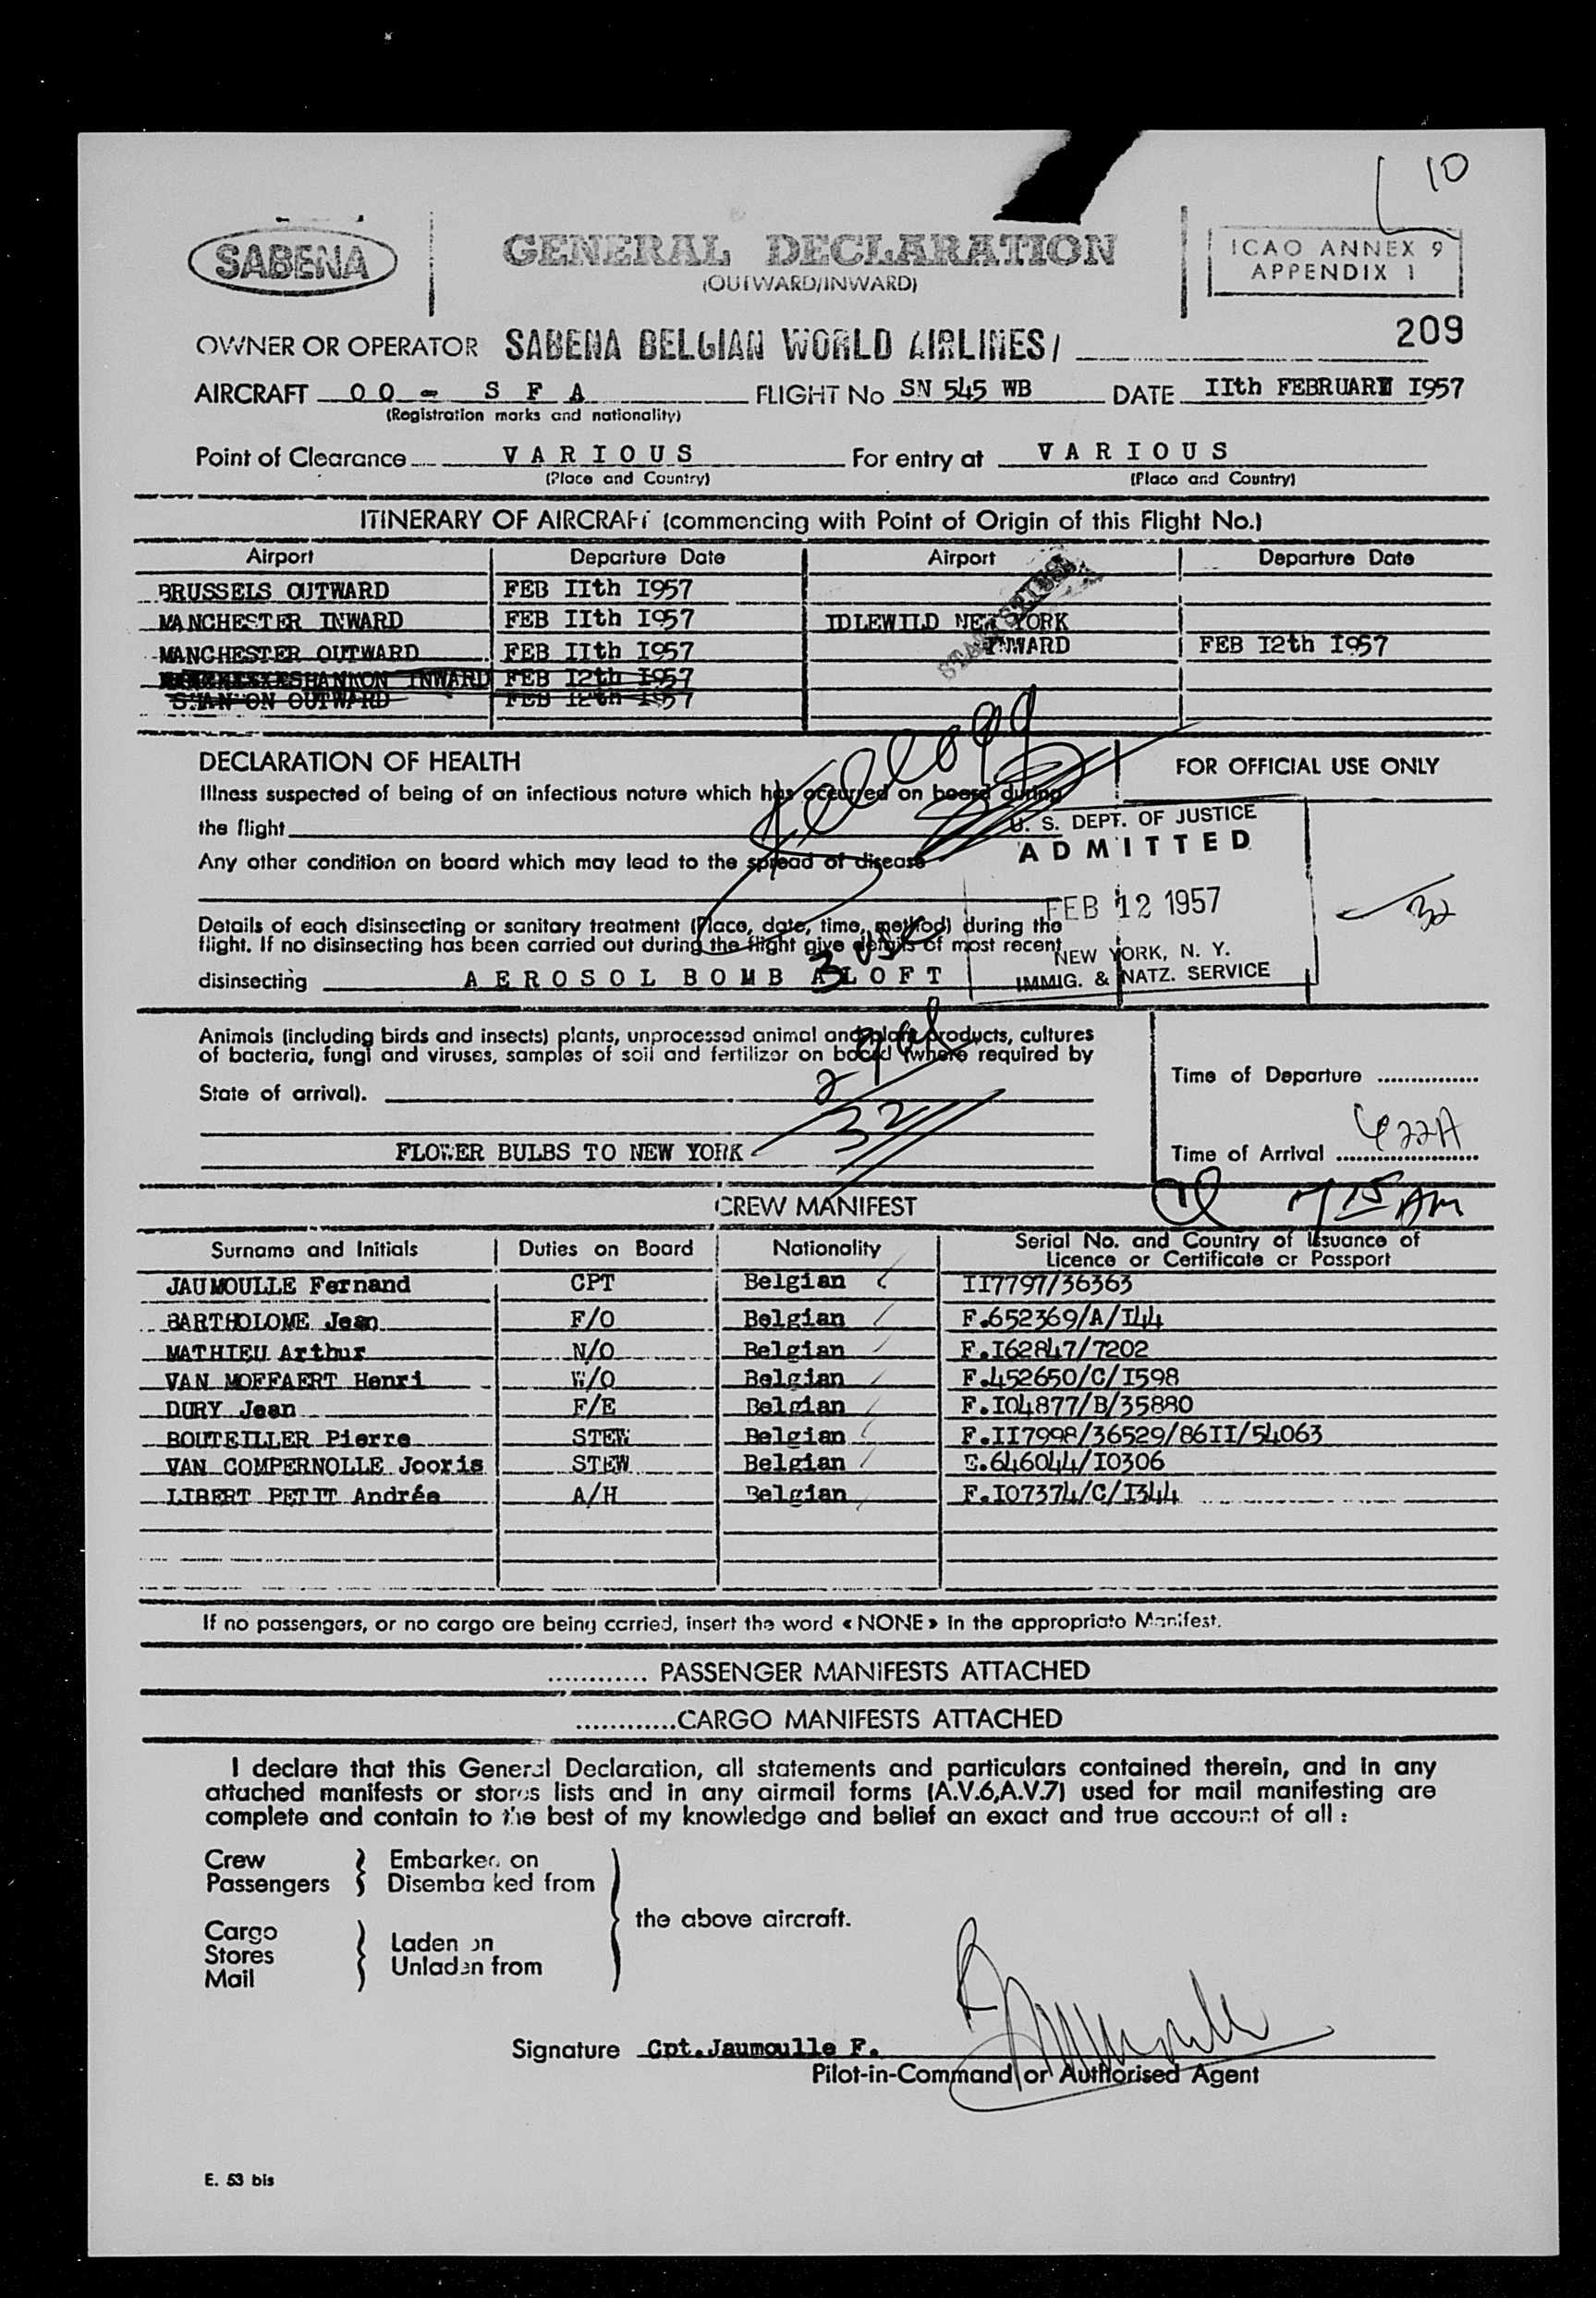 10
SABENA
GENERAL DECLARATION
(OUTWARD/INWARD)
ICAO ANNEX 9
APPENDIX 1
209
OWNER OR OPERATOR SABENA BELGIAN WORLD AIRLINES/
AIRCRAFT OO - S F A FLIGHT No SN 545 WB DATE IIth FEBRUARY I957
(Registration marks and nationality)
Point of Clearance V A R I O U S For entry at V A R I O U S
(Place and Country) (Place and Country)
ITINERARY OF AIRCRAFT (commencing with Point of Origin of this Flight No.)
Airport Departure Date Airport Departure Date
BRUSSELS OUTWARD FEB IIth I957
MANCHESTER INWARD FEB IIth I957 IDLEWILD NEW YORK
MANCHESTER OUTWARD FEB IIth I957 INWARD FEB I2th I957
SHANNON INWARD FEB I2th I957
SHANNON OUTWARD FEB I2th I957
Kellogg
DECLARATION OF HEALTH
FOR OFFICIAL USE ONLY
Illness suspected of being of an infectious nature which has occurred on board during
the flight
Any other condition on board which may lead to the spread of disease
U. S. DEPT. OF JUSTICE
ADMITTED
FEB 12 1957
NEW YORK, N. Y.
IMMIG. & NATZ. SERVICE
32
Details of each disinsecting or sanitary treatment (Place, date, time, method) during the
flight. If no disinsecting has been carried out during the flight give details of most recent
disinsecting A E R O S O L B O M B A L O F T
3 USC
Animals (including birds and insects) plants, unprocessed animal and plant products, cultures
of bacteria, fungi and viruses, samples of soil and fertilizer on board (where required by
State of arrival).
32
FLOWER BULBS TO NEW YORK
Time of Departure
Time of Arrival 622A
7 15 AM
CREW MANIFEST
Surname and Initials Duties on Board Nationality Serial No. and Country of Issuance of
Licence or Certificate or Passport
JAUMOULLE Fernand CPT Belgian II7797/36363
BARTHOLOME Jean F/O Belgian F.652369/A/I44
MATHIEU Arthur N/O Belgian F.I62847/7202
VAN MOFFAERT Henri W/O Belgian F.452650/C/I598
DURY Jean F/E Belgian F.I04877/B/35880
BOUTEILLER Pierre STEW Belgian F.II7998/36529/86II/54063
VAN COMPERNOLLE Jooris STEW Belgian E.646044/I0306
LIBERT PETIT Andrée A/H Belgian F.I07374/C/I344
If no passengers, or no cargo are being carried, insert the word « NONE » in the appropriate Manifest.
............ PASSENGER MANIFESTS ATTACHED
............CARGO MANIFESTS ATTACHED
I declare that this General Declaration, all statements and particulars contained therein, and in any
attached manifests or stores lists and in any airmail forms (A.V.6,A.V.7) used for mail manifesting are
complete and contain to the best of my knowledge and belief an exact and true account of all :
Crew Embarked on
Passengers Disembarked from
the above aircraft.
Cargo
Stores Laden on
Mail Unladen from
Signature Cpt.Jaumoulle F.
Pilot-in-Command or Authorised Agent
E. 53 bis